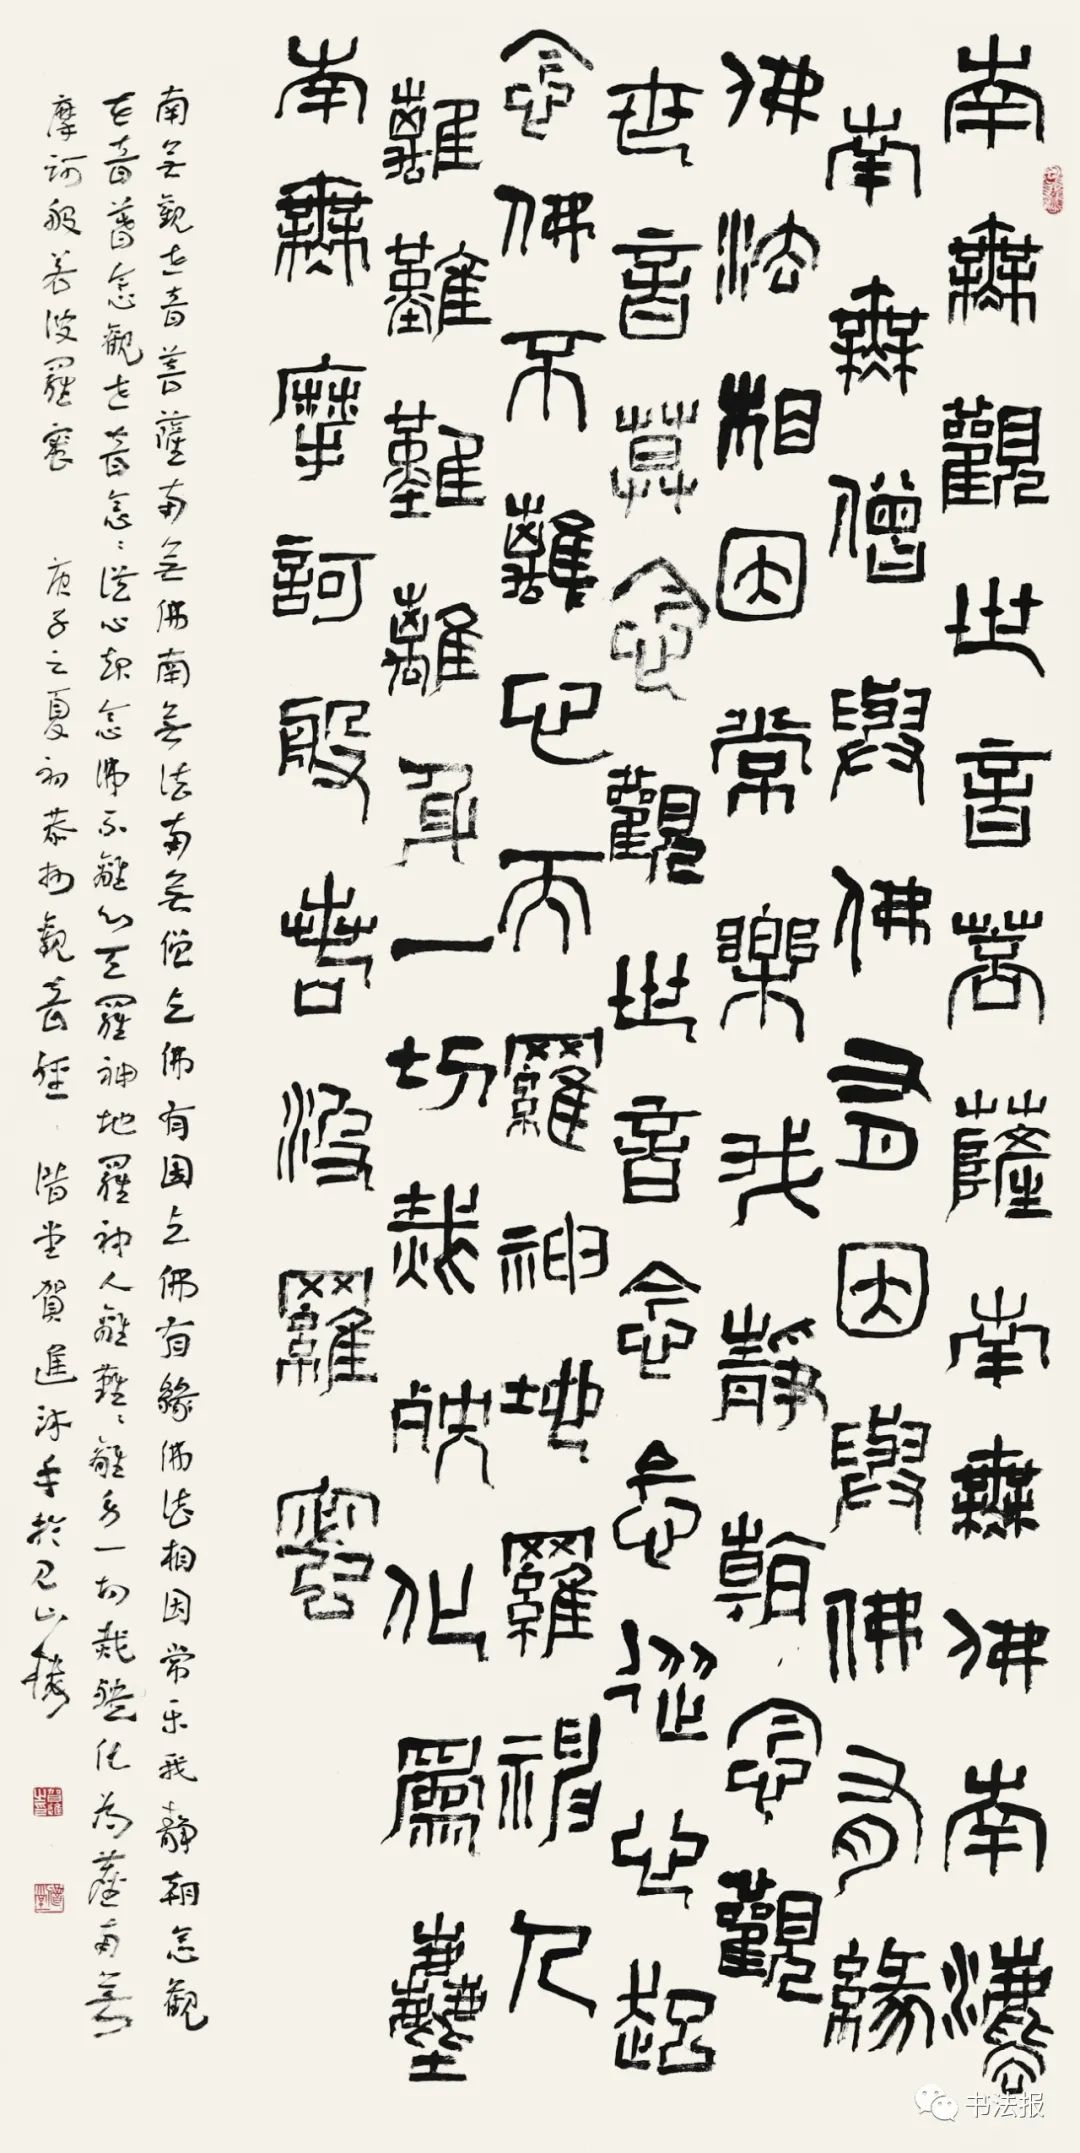 南無觀世音菩薩南無佛南無灋
南無僧與佛有因與佛有緣
佛法相因常樂我靜朝念觀
世音莫念觀世音念念從心起
念佛不離心天羅神地羅神人
離難難離身一切裁殃化為塵
南無摩訶般若波羅蜜
南無觀世音菩薩南無佛南無法南無僧与佛有因与佛有緣佛法相因常乐我靜朝念觀
世音暮念觀世音念念從心起念佛不離心天羅神地羅神人離難難離身一切裁殃化為塵南無
摩訶般若波羅蜜 庚子之夏初恭抄觀音經 階堂賀進沐手於見山樓
书法报